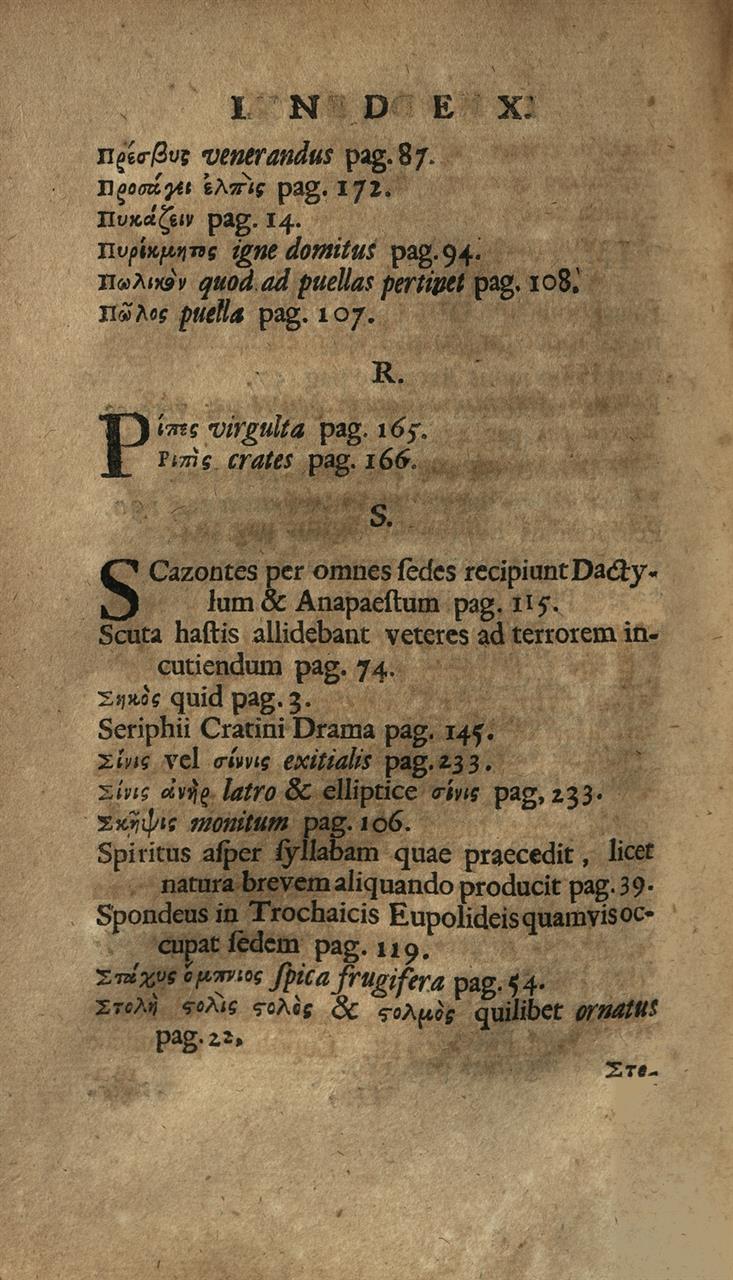 I N D E X.
Πρέσβυς venerandus pag. 87.
Προσάγει ἐλπὶς pag. 172.
Πυκάζειν pag. 14.
Πυρίκμητος igne domitus pag. 94.
Πωλικὸν quod ad puellas pertinet pag. 108.
Πῶλος puella pag. 107.
R.
Ρίπες virgulta pag. 165.
Ριπὶς crates pag. 166.
S.
SCazontes per omnes ſedes recipiunt Dacty-
lum & Anapaeſtum pag. 115.
Scuta haſtis allidebant veteres ad terrorem in-
cutiendum pag. 74.
Σηκὸς quid pag. 3.
Seriphii Cratini Drama pag. 145.
Σίνις vel σίννις exitialis pag. 233.
Σίνις ἀνὴρ latro & elliptice σίνις pag, 233.
Σκῆψις monitum pag. 106.
Spiritus aſper ſyllabam quae praecedit, licet
natura brevem aliquando producit pag. 39.
Spondeus in Trochaicis Eupolideis quamvis oc-
cupat ſedem pag. 119.
Στάχυς ὄμπνιος ſpica frugifera pag. 54.
Στολὴ ϛολὶς ϛολὸς & ϛολμὸς quilibet ornatus
pag. 22,
Στε-